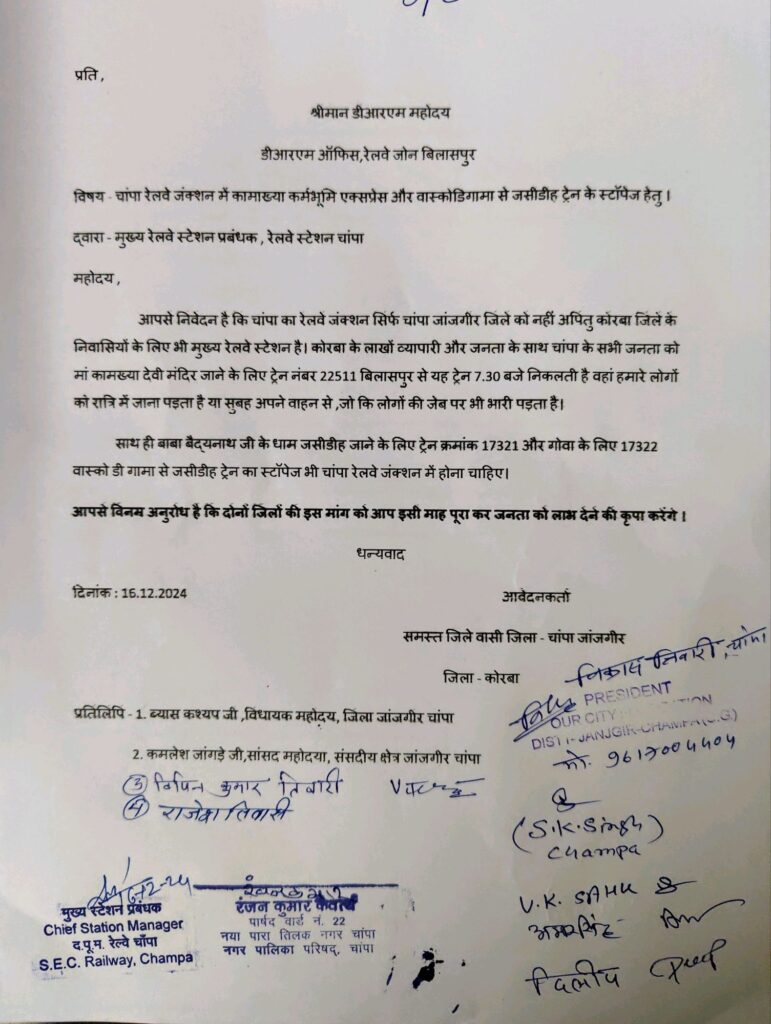 प्रति ,
श्रीमान डीआरएम महोदय
डीआरएम ऑफिस,रेलवे जोन बिलासपुर
विषय - चांपा रेलवे जंक्शन में कामाख्या कर्मभूमि एक्सप्रेस और वास्कोडिगामा से जसीडीह ट्रेन के स्टॉपेज हेतु ।
द्वारा - मुख्य रेलवे स्टेशन प्रबंधक , रेलवे स्टेशन चांपा
महोदय ,
आपसे निवेदन है कि चांपा का रेलवे जंक्शन सिर्फ चांपा जांजगीर जिले को नहीं अपितु कोरबा जिले के
निवासियों के लिए भी मुख्य रेलवे स्टेशन है। कोरबा के लाखों व्यापारी और जनता के साथ चांपा के सभी जनता को
मां कामख्या देवी मंदिर जाने के लिए ट्रेन नंबर 22511 बिलासपुर से यह ट्रेन 7.30 बजे निकलती है वहां हमारे लोगों
को रात्रि में जाना पड़ता है या सुबह अपने वाहन से ,जो कि लोगों की जेब पर भी भारी पड़ता है।
साथ ही बाबा बैद्यनाथ जी के धाम जसीडीह जाने के लिए ट्रेन क्रमांक 17321 और गोवा के लिए 17322
वास्को डी गामा से जसीडीह ट्रेन का स्टॉपेज भी चांपा रेलवे जंक्शन में होना चाहिए।
आपसे विनम्र अनुरोध है कि दोनों जिलों की इस मांग को आप इसी माह पूरा कर जनता को लाभ देने की कृपा करेंगे ।
धन्यवाद
दिनांक : 16.12.2024
आवेदनकर्ता
समस्त जिले वासी जिला - चांपा जांजगीर
जिला - कोरबा
तिवारी, चांपा
PRESIDENT
OUR CITY
DISTT-JANJGIR-CHAMPA(C.G)
मो. 9617004404
प्रतिलिपि - 1. ब्यास कश्यप जी ,विधायक महोदय, जिला जांजगीर चांपा
2. कमलेश जांगड़े जी,सांसद महोदया, संसदीय क्षेत्र जांजगीर चांपा
③ विपिन कुमार तिवारी
④ राजेश तिवारी
(S.K.Singh)
Champa
V.K. SAHU
अमरसिंह
दिलीप
मुख्य स्टेशन प्रबंधक
Chief Station Manager
द.पू.म. रेल्वे चाँपा
S.E.C. Railway, Champa
रंजन कुमार कैवर्त
पार्षद वार्ड नं. 22
नया पारा तिलक नगर चांपा
नगर पालिका परिषद्, चांपा